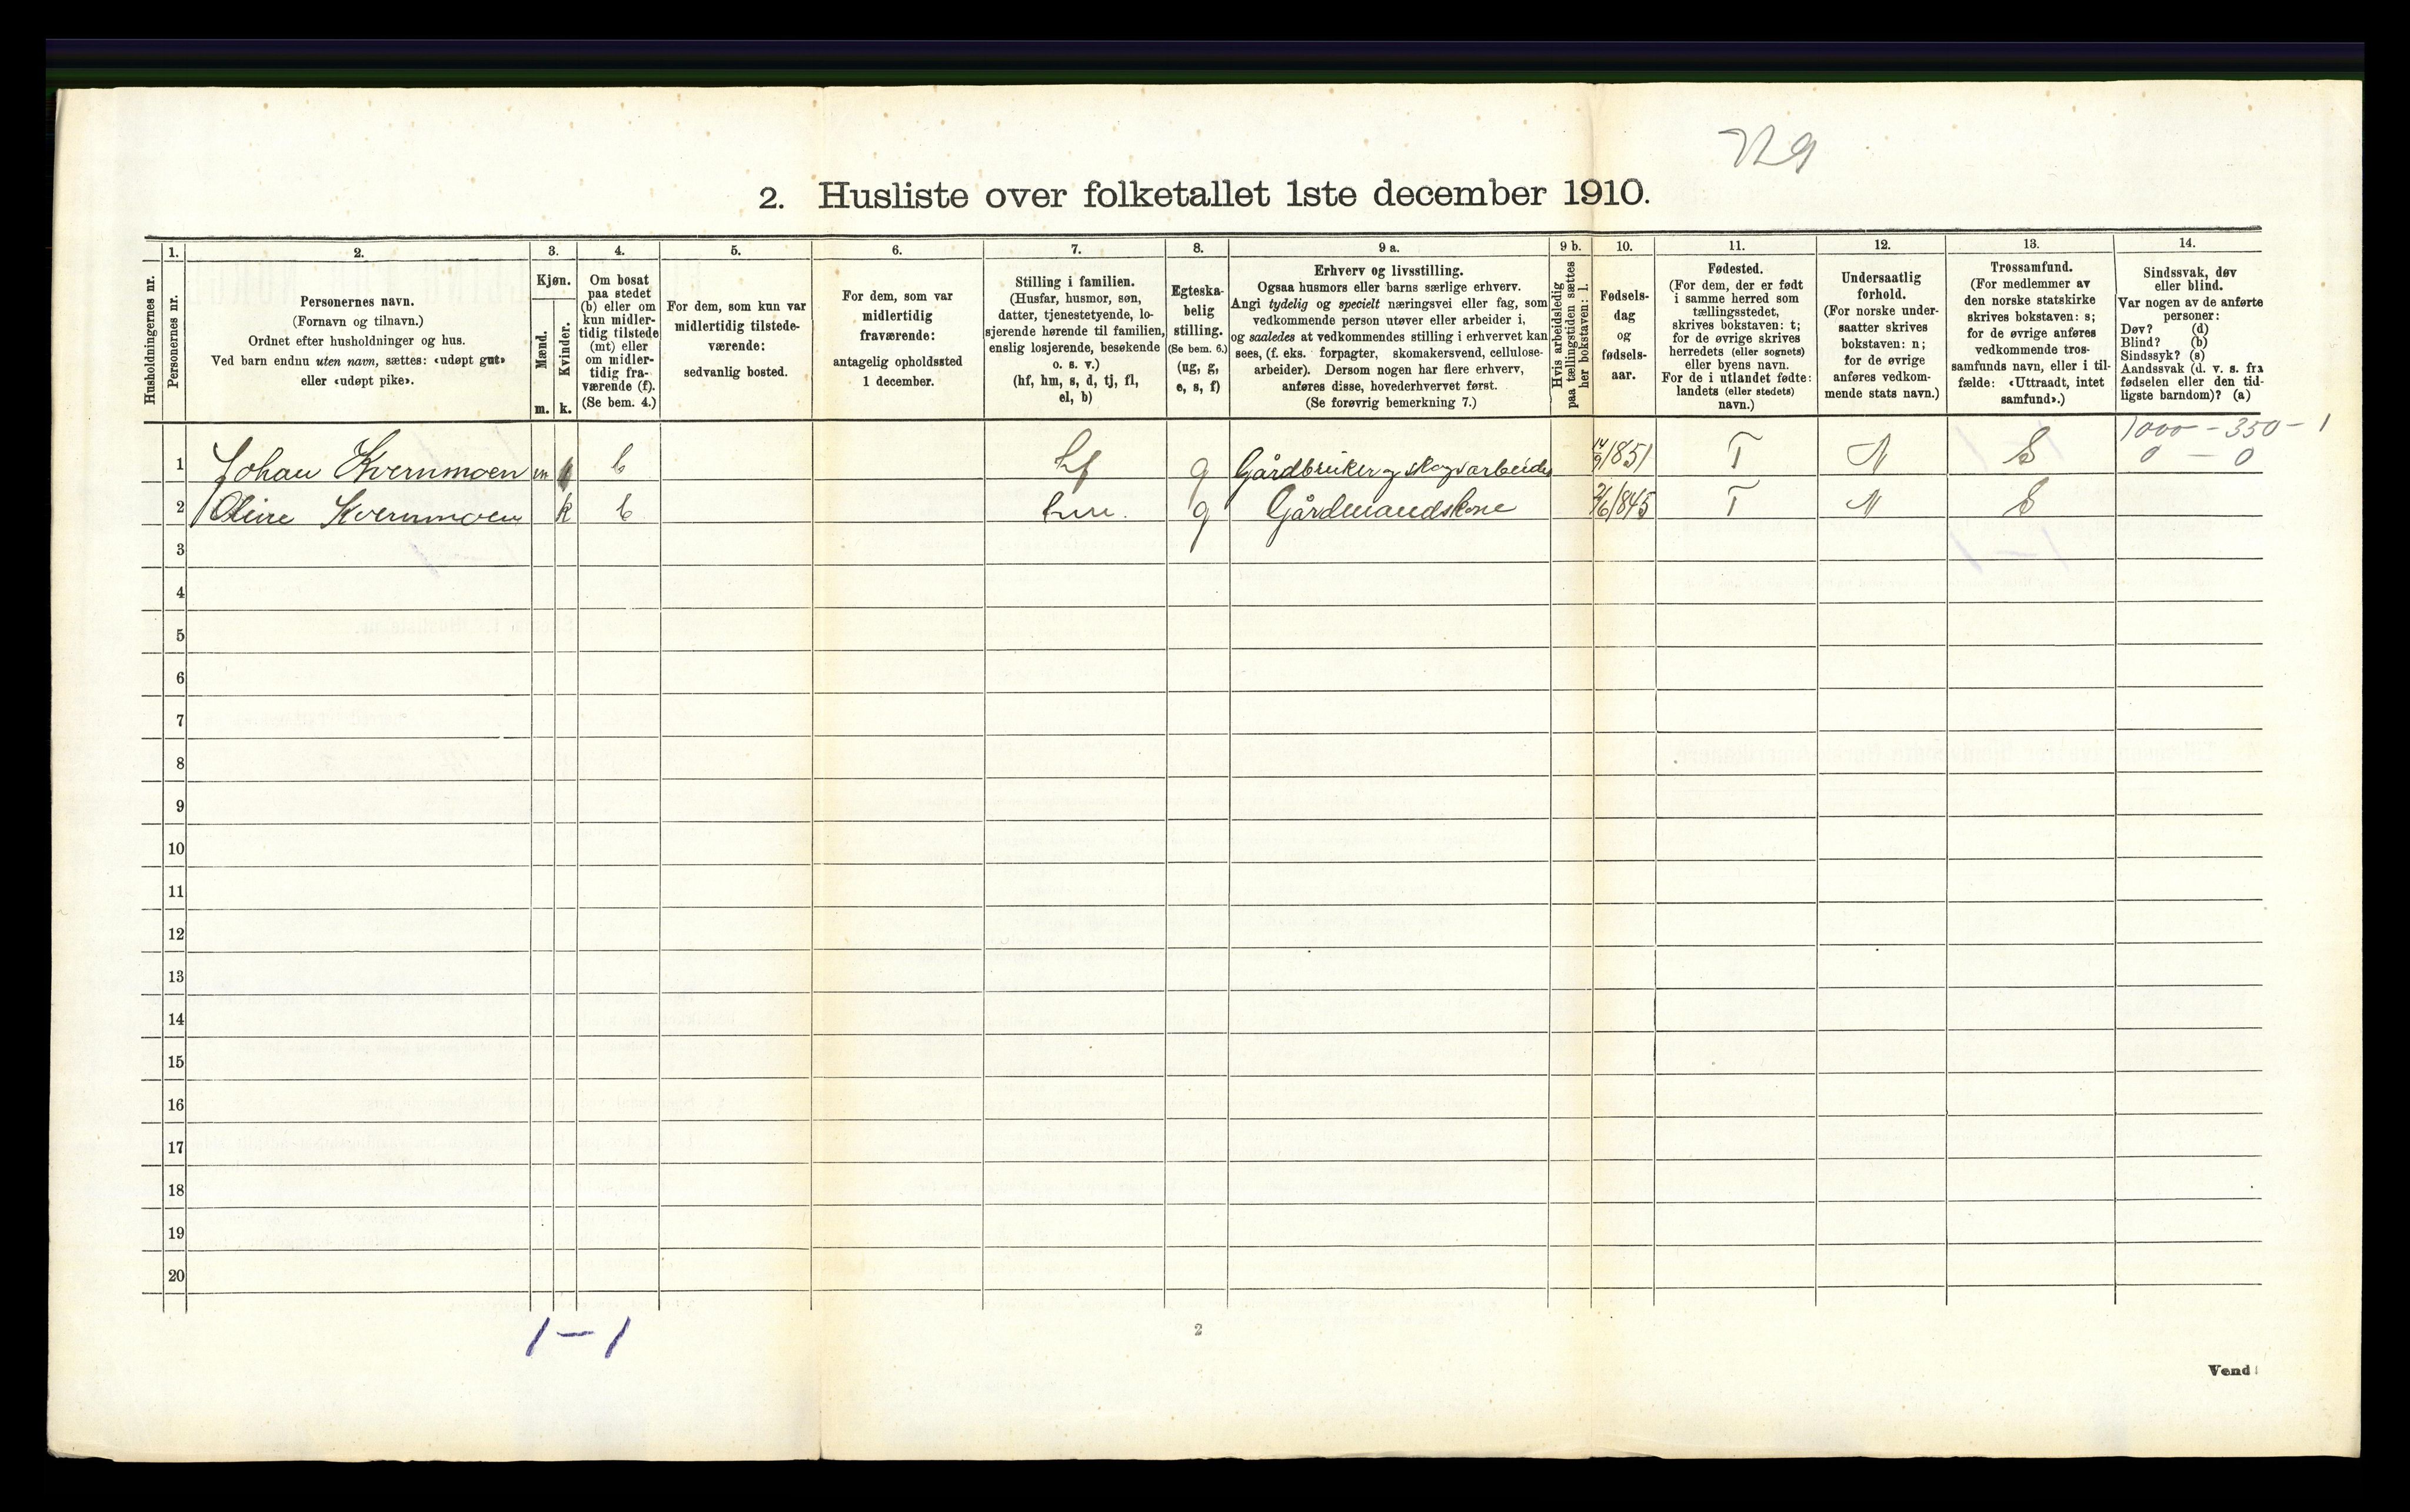 729
2. Husliste over folketallet 1ste december 1910.
Husholdningernes nr.
1.
Personernes nr.
2.
Personernes navn.
(Fornavn og tilnavn.)
Ordnet efter husholdninger og hus.
Ved barn endnu uten navn, sættes: «udøpt gut»
eller «udøpt pike».
3.
Kjøn.
Mænd.
Kvinder.
m. k.
4.
Om bosat
paa stedet
(b) eller om
kun midler-
tidig tilstede
(mt) eller
om midler-
tidig fra-
værende (f).
(Se bem. 4.)
5.
For dem, som kun var
midlertidig tilstede-
værende:
sedvanlig bosted.
6.
For dem, som var
midlertidig
fraværende:
antagelig opholdssted
1 december.
7.
Stilling i familien.
(Husfar, husmor, søn,
datter, tjenestetyende, lo-
sjerende hørende til familien,
enslig losjerende, besøkende
o. s. v.)
(hf, hm, s, d, tj, fl,
el, b)
8.
Egteska-
belig
stilling.
(Se bem. 6.)
(ug, g,
e, s, f)
9 a.
Erhverv og livsstilling.
Ogsaa husmors eller barns særlige erhverv.
Angi tydelig og specielt næringsvei eller fag, som
vedkommende person utøver eller arbeider i,
og saaledes at vedkommendes stilling i erhvervet kan
sees, (f. eks. forpagter, skomakersvend, cellulose-
arbeider). Dersom nogen har flere erhverv,
anføres disse, hovederhvervet først.
(Se forøvrig bemerkning 7.)
9 b.
Hvis arbeidsledig
paa tællingstiden sættes
her bokstaven: l.
10.
Fødsels-
dag
og
fødsels-
aar.
11.
Fødested.
(For dem, der er født
i samme herred som
tællingsstedet,
skrives bokstaven: t;
for de øvrige skrives
herredets (eller sognets)
eller byens navn.
For de i utlandet fødte:
landets (eller stedets)
navn.)
12.
Undersaatlig
forhold.
(For norske under-
saatter skrives
bokstaven: n;
for de øvrige
anføres vedkom-
mende stats navn.)
13.
Trossamfund.
(For medlemmer av
den norske statskirke
skrives bokstaven: s;
for de øvrige anføres
vedkommende tros-
samfunds navn, eller i til-
fælde: «Uttraadt, intet
samfund».)
14.
Sindssvak, døv
eller blind.
Var nogen av de anførte
personer:
Døv? (d)
Blind? (b)
Sindssyk? (s)
Aandssvak (d. v. s. fra
fødselen eller den tid-
ligste barndom)? (a)
1000 - 350 - 1
0 - 0
1 Johan Kvernmoen m b hf g Gårdbruker og skogsarbeider 14/9 1851 T N S
2 Oline Kvernmoen k b hm. g Gårdmandskone 845 T N S
3
4
5
6
7
8
9
10
11
12
13
14
15
16
17
18
19
20
1 - 1
2
Vend!